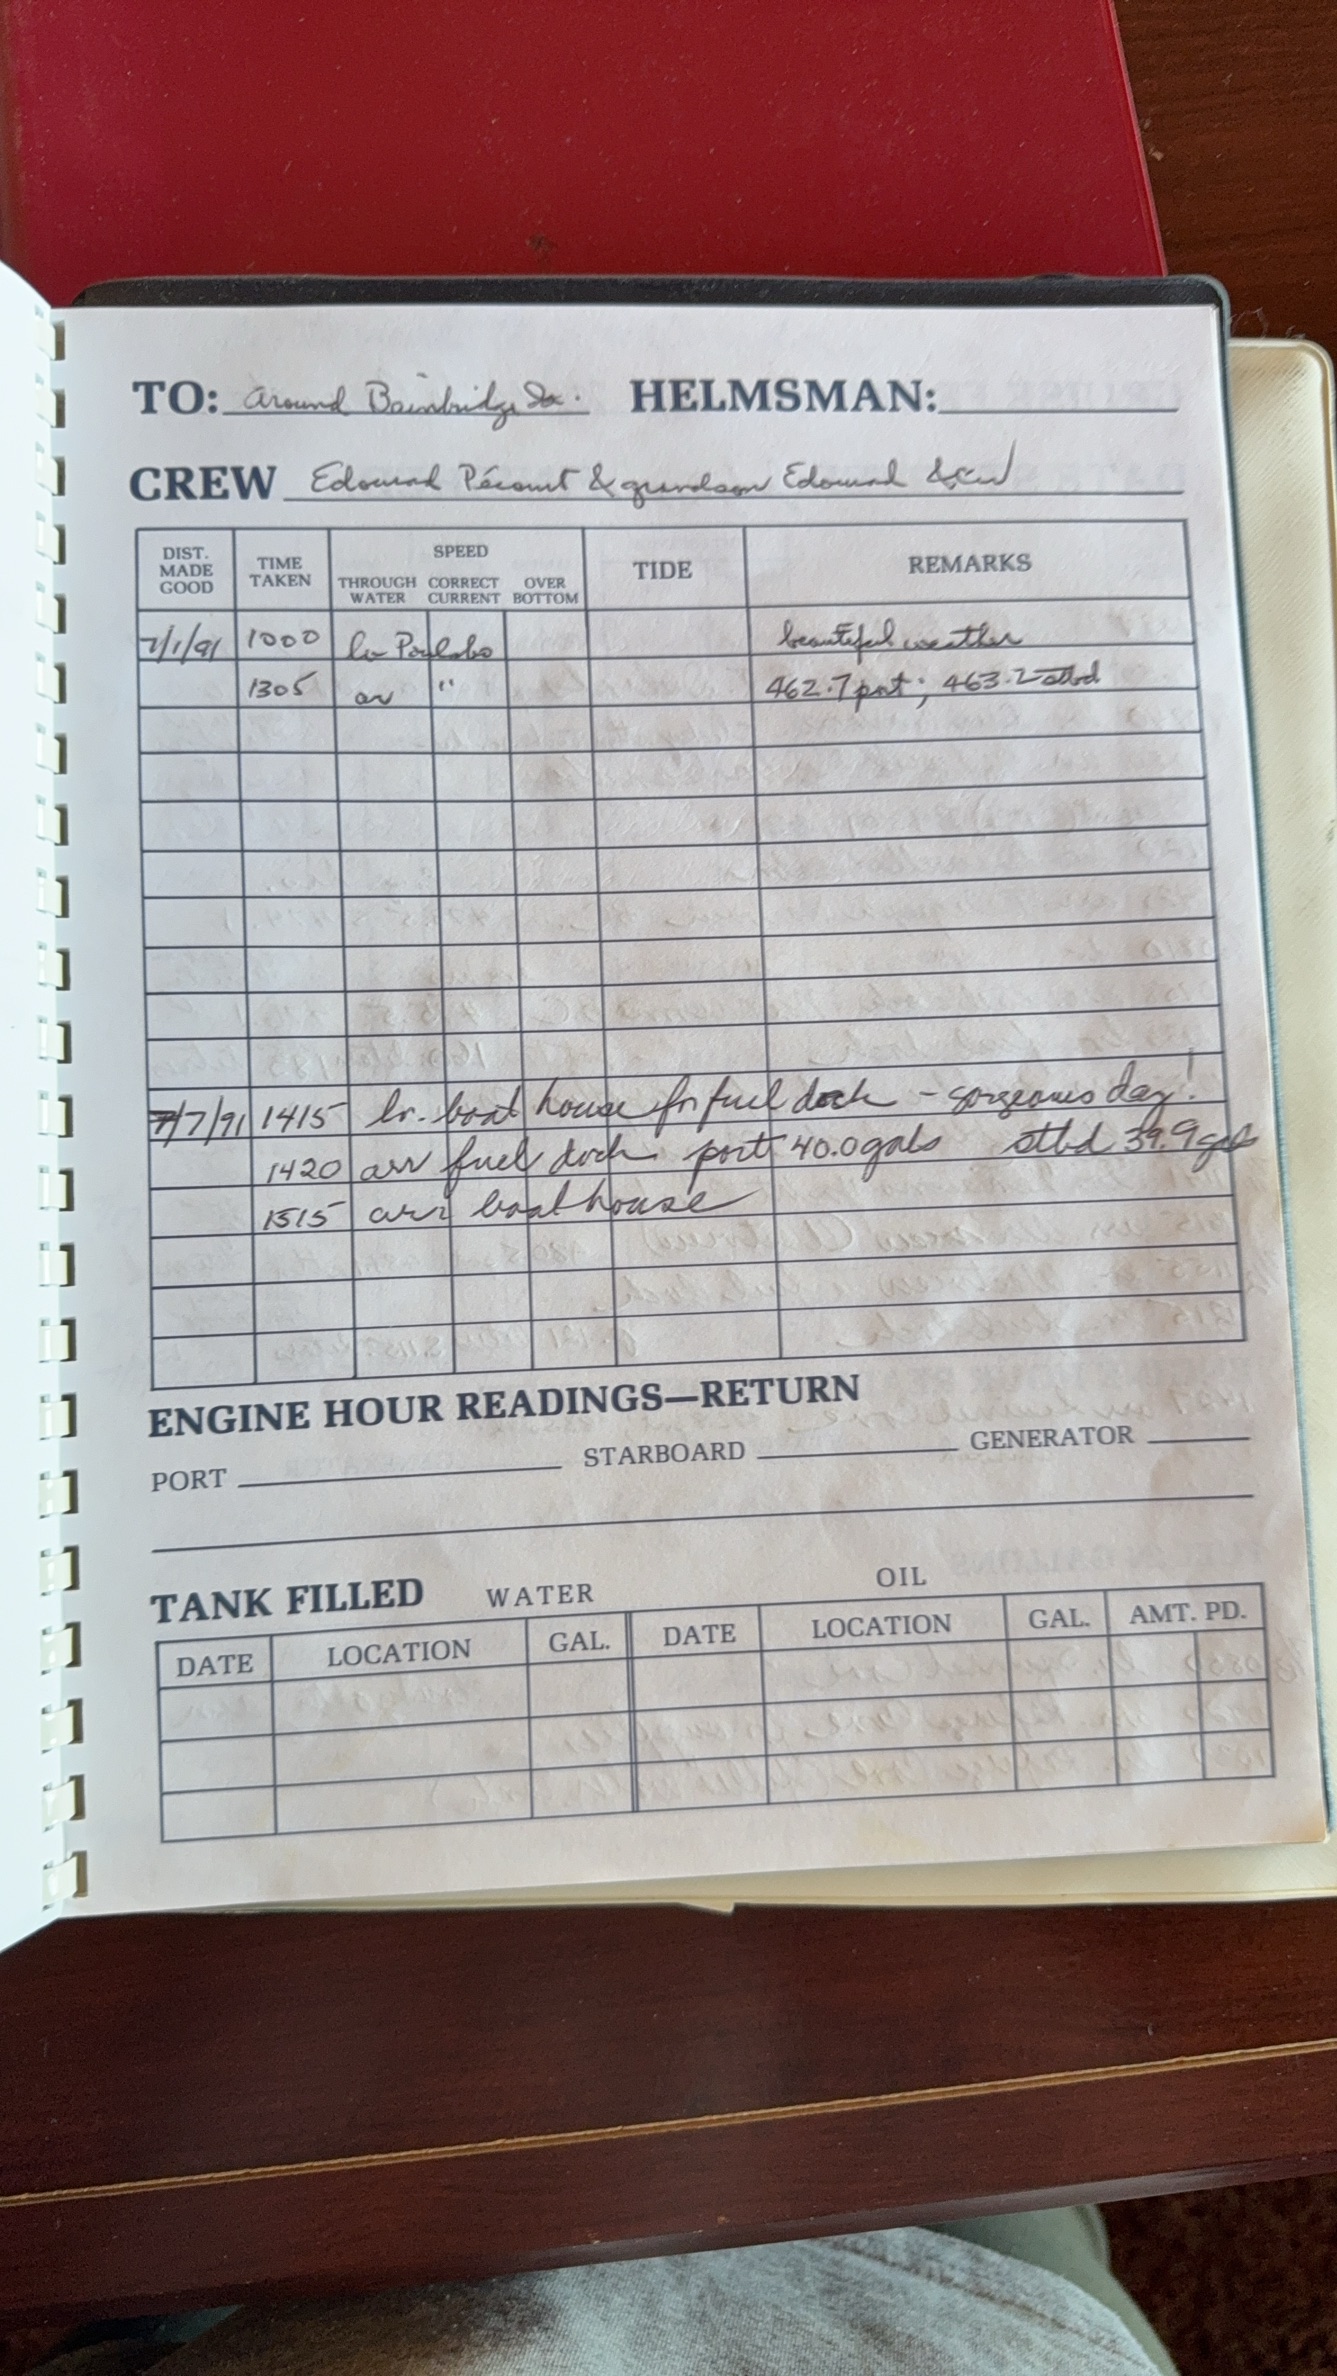 TO: around Bainbridge Is. HELMSMAN:
CREW Edouard Pécourt & grandson Edouard &
DIST. MADE GOOD TIME TAKEN SPEED THROUGH WATER CORRECT CURRENT OVER BOTTOM TIDE REMARKS
7/1/91 1000 lv Poulsbo beautiful weather
1305 arr " 462.7 port; 463.2 stbd
7/7/91 1415 lv. boat house for fuel dock - gorgeous day!
1420 arr fuel dock port 40.0 gals stbd 39.9 gals
1515 arr boat house
ENGINE HOUR READINGS—RETURN
PORT STARBOARD GENERATOR
TANK FILLED WATER OIL
DATE LOCATION GAL. DATE LOCATION GAL. AMT. PD.